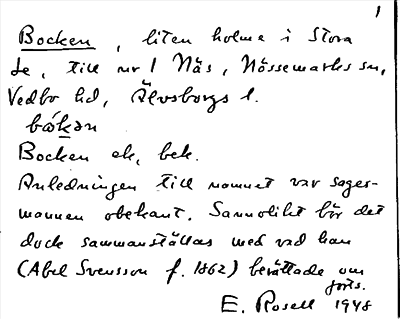 1
Bocken, liten holme i Stora
Le, till nr 1 Näs, Nössemarks sn,
Vedbo hd, Älvsborgs l.
båkan
Bocken ek, bek.
Anledningen till namnet var sages-
mannen obekant. Sannolikt bör det
dock sammanställas med vad han
(Abel Svensson f. 1862) berättade om
forts.
E. Rosell 1948